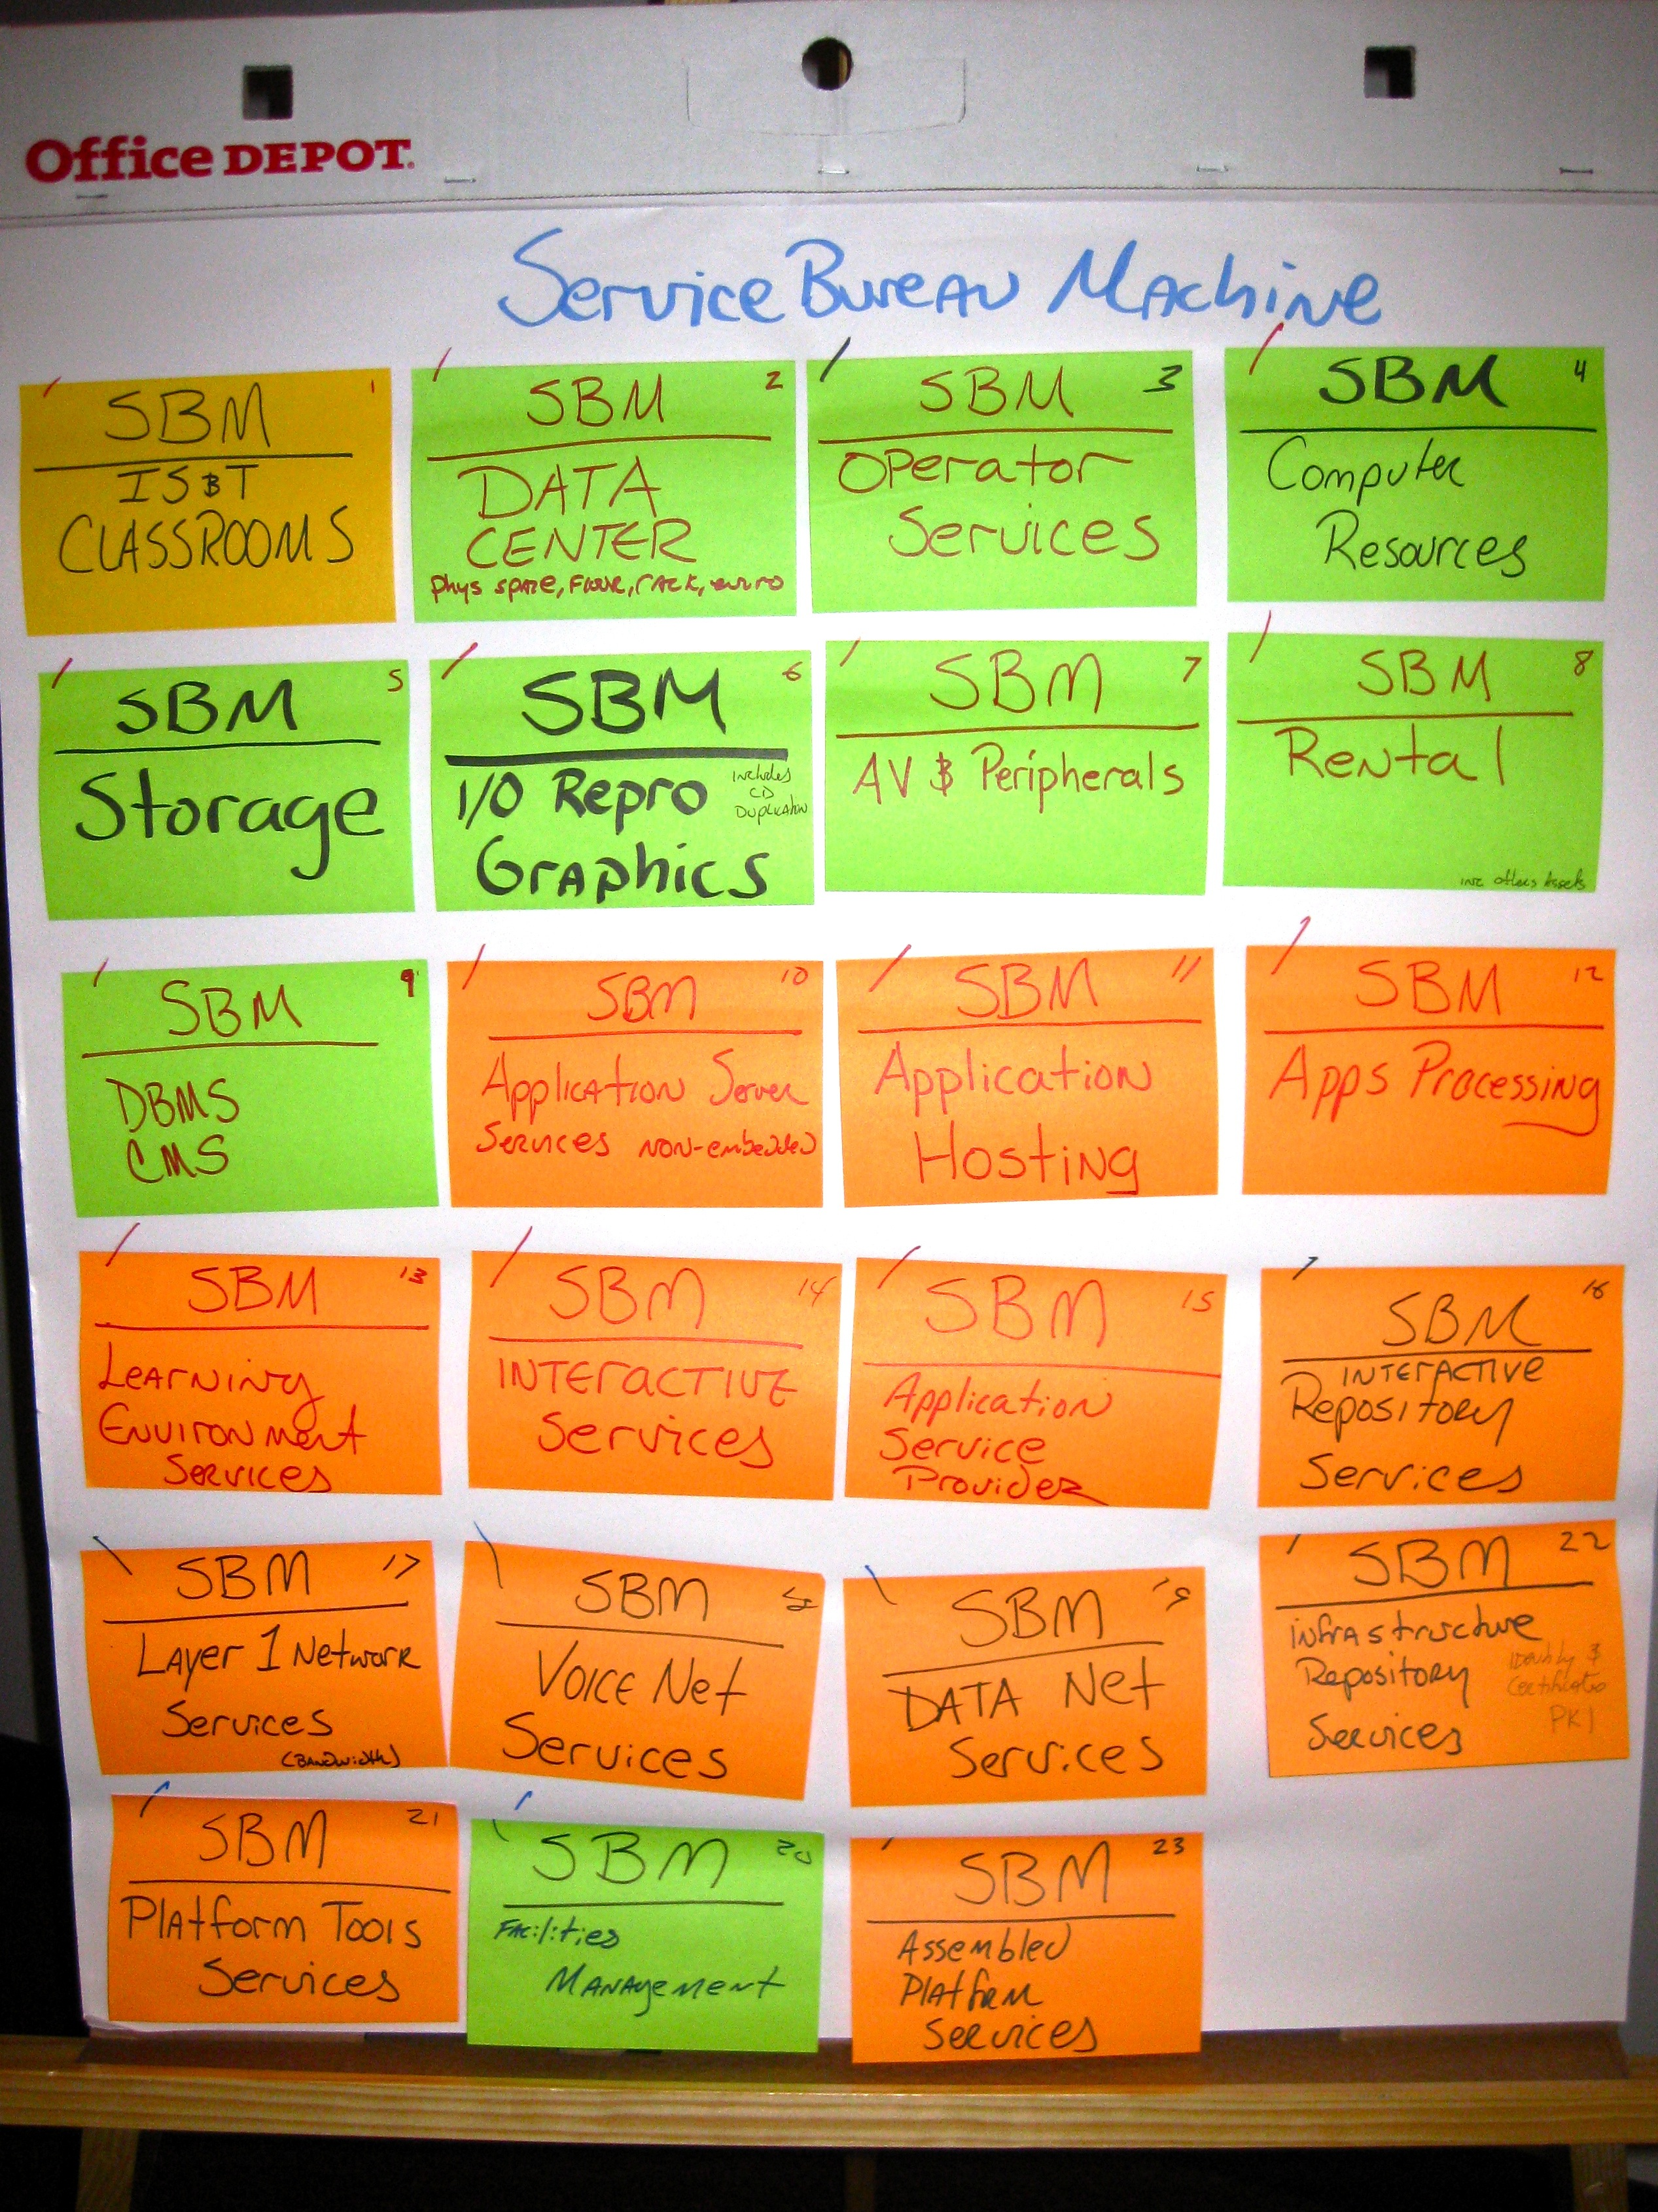 Office DEPOT.
Service Bureau Machine
SBM 1
IS&T
CLASSROOMS
SBM 2
DATA
CENTER
phys space, Floor, rack, enviro
SBM 3
Operator
Services
SBM 4
Computer
Resources
SBM 5
Storage
SBM 6
I/O Repro
Graphics
includes
CD
Duplication
SBM 7
AV & Peripherals
SBM 8
Rental
inc others Assets
SBM 9
DBMS
CMS
SBM 10
Application Server
Services non-embedded
SBM 11
Application
Hosting
SBM 12
Apps Processing
SBM 13
Learning
Environment
Services
SBM 14
INTERACTIVE
Services
SBM 15
Application
Service
Provider
SBM 16
INTERACTIVE
Repository
Services
SBM 17
Layer 1 Network
Services
(Bandwidth)
SBM 18
Voice Net
Services
SBM 19
DATA Net
Services
SBM 22
infrastructure
Repository
Services
Identity &
Certificates
PKI
SBM 21
Platform Tools
Services
SBM 20
Facilities
Management
SBM 23
Assembled
Platform
Services